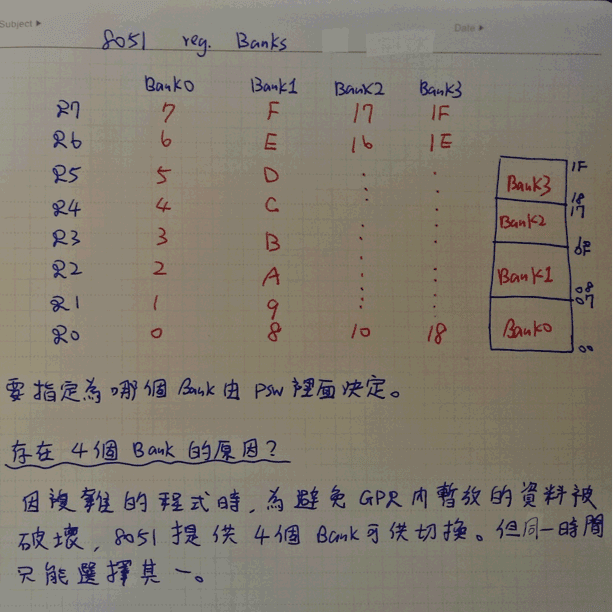 Subject ▶ Date ▶
8051 reg. Banks
Bank0 Bank1 Bank2 Bank3
R7 7 F 17 1F
R6 6 E 16 1E
R5 5 D : :
R4 4 C : :
R3 3 B : :
R2 2 A : :
R1 1 9 : :
R0 0 8 10 18
1F
Bank3
18
17
Bank2
10
0F
Bank1
08
07
Bank0
00
要指定為哪個 Bank 由 PSW 裡面決定。
存在 4個 Bank 的原因?
因複雜的程式時,為避免 GPR 內暫放的資料被
破壞,8051 提供 4個 Bank 可供切換。但同一時間
只能選擇其一。